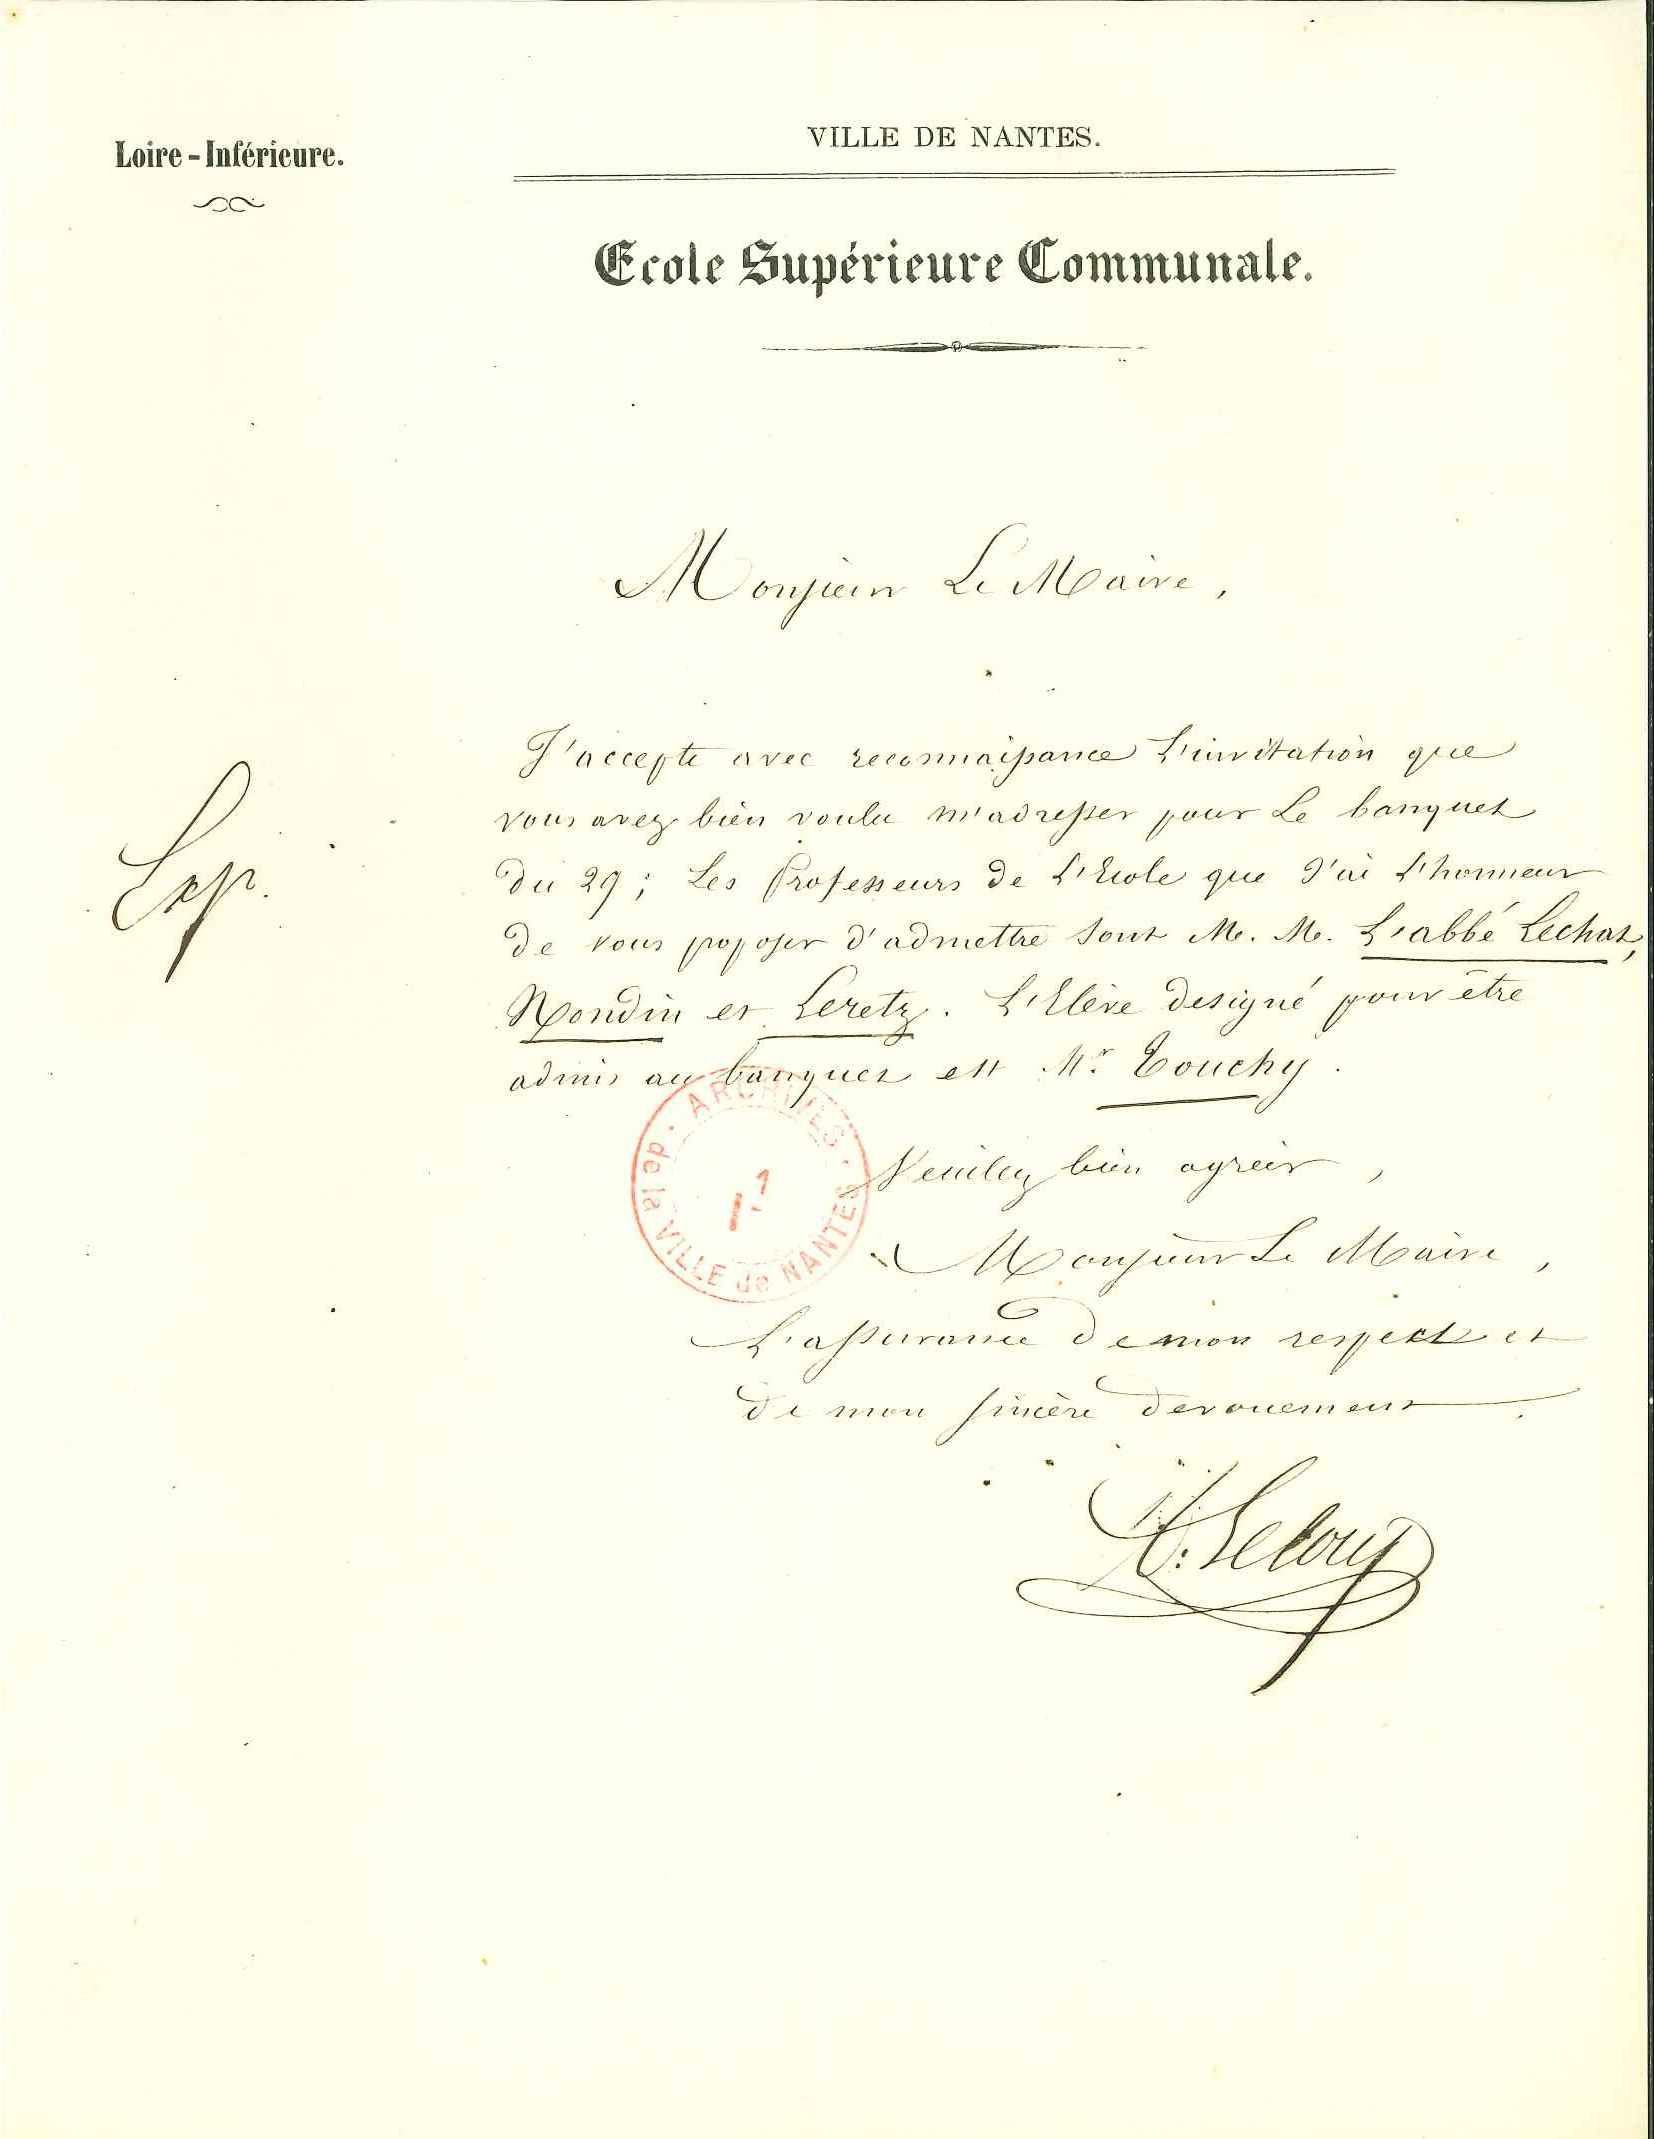 Loire-Inférieure.
VILLE DE NANTES.
Ecole Supérieure Communale.
Monsieur Le Maire,
J'accepte avec reconnaissance L'invitation que
vous avez bien voulu m'adresser pour Le banquet
du 29 ; Les Professeurs de L'Ecole que J'ai L'honneur
de vous proposer d'admettre sont M. M. L'abbé Lechat,
Rondin et Leretz. L'Elève designé pour être
admis au banquet est Mr. Touchy.
Exp.
ARCHIVES de la VILLE de NANTES
Veuillez bien agréer,
Monsieur Le Maire,
L'assurance de mon respect et
de mon sincère devouement.
Leloup